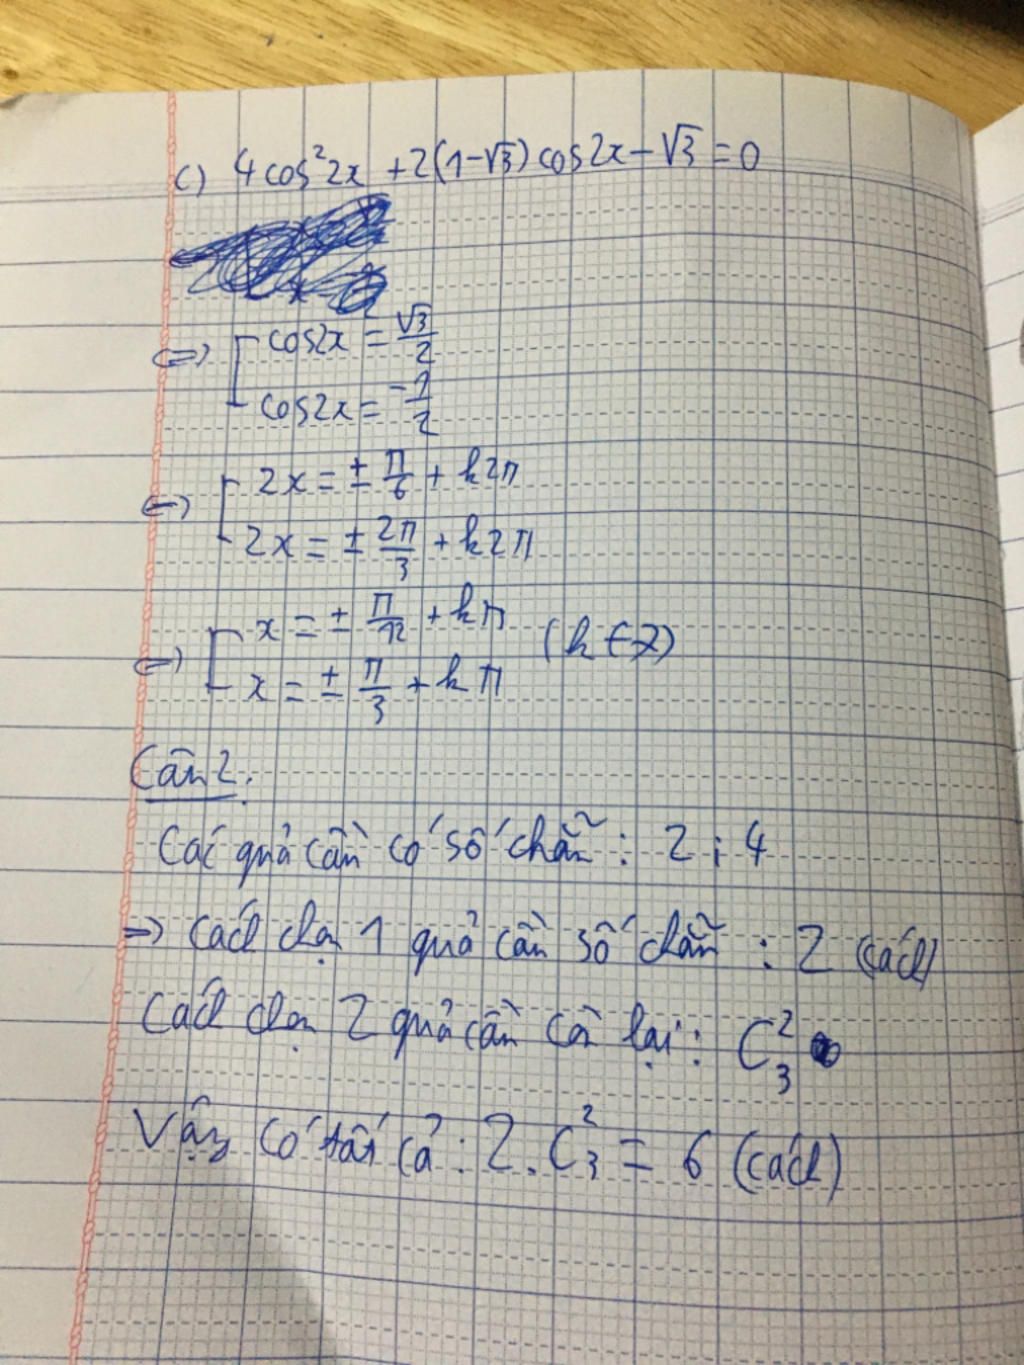 c) 4cos²2x + 2(1-√3)cos2x - √3 = 0
⇔ [ cos2x = √3/2
cos2x = -1/2
⇔ [ 2x = ± π/6 + k2π
2x = ± 2π/3 + k2π
⇔ [ x = ± π/12 + kπ
x = ± π/3 + kπ (k ∈ Z)
Câu 2:
Các quả cầu có số chẵn : 2 ; 4
⇒ Cách chọn 1 quả cầu số chẵn : 2 (cách)
Cách chọn 2 quả cầu còn lại : C²₃
Vậy có tất cả : 2 . C²₃ = 6 (cách)